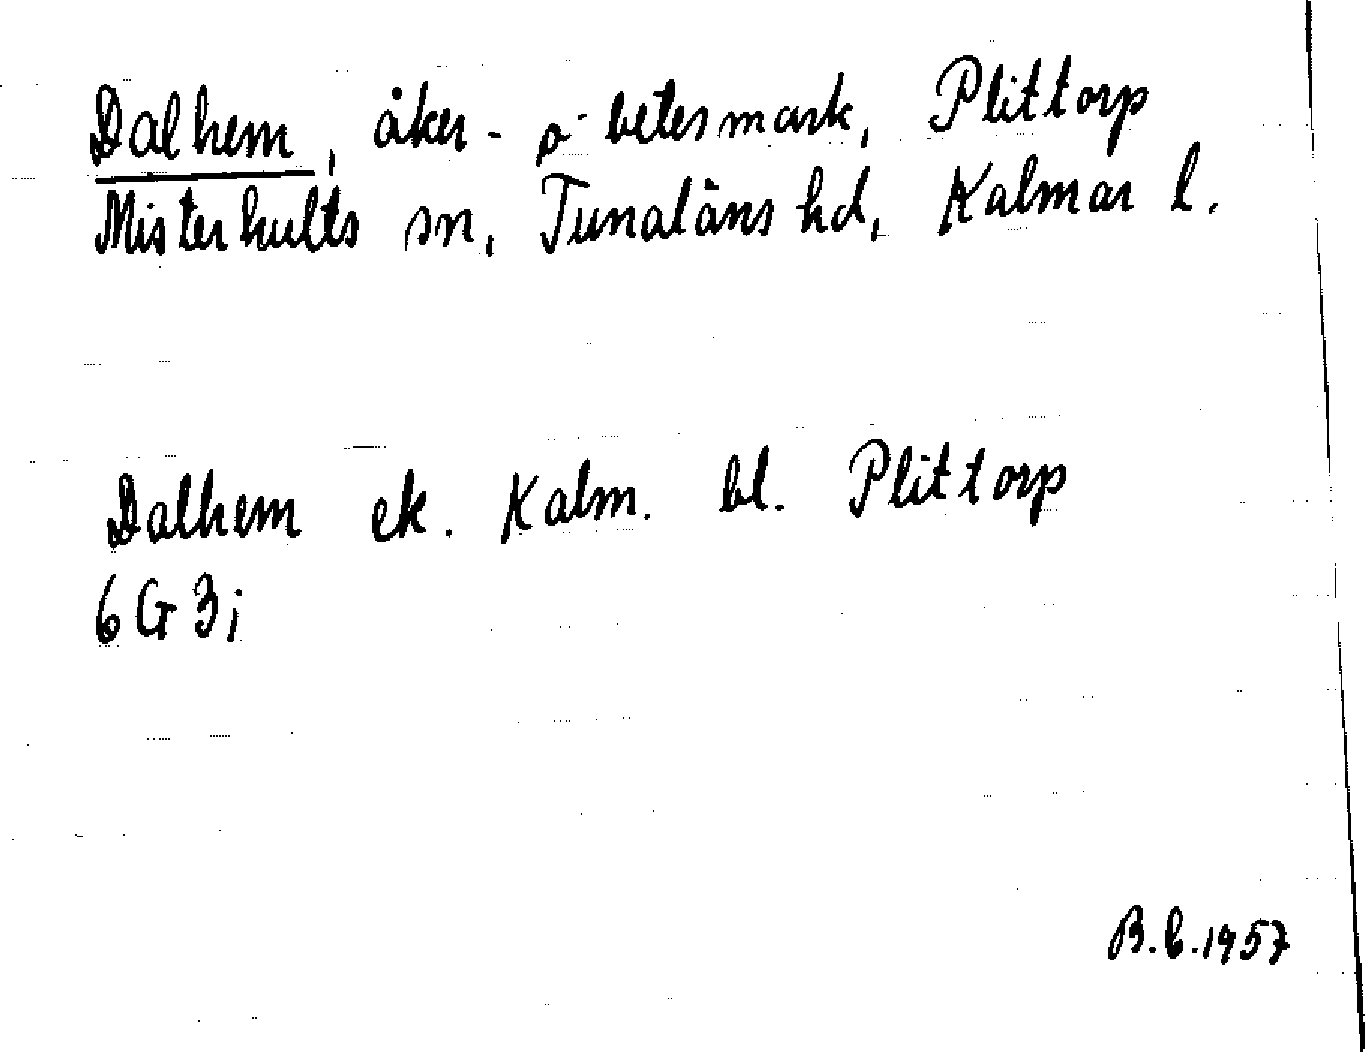 Dalhem, åker- o betesmark, Plittorp
Misterhults sn, Tunaläns hd, Kalmar l.
Dalhem ek. Kalm. bl. Plittorp
6G3i
B.b.1957